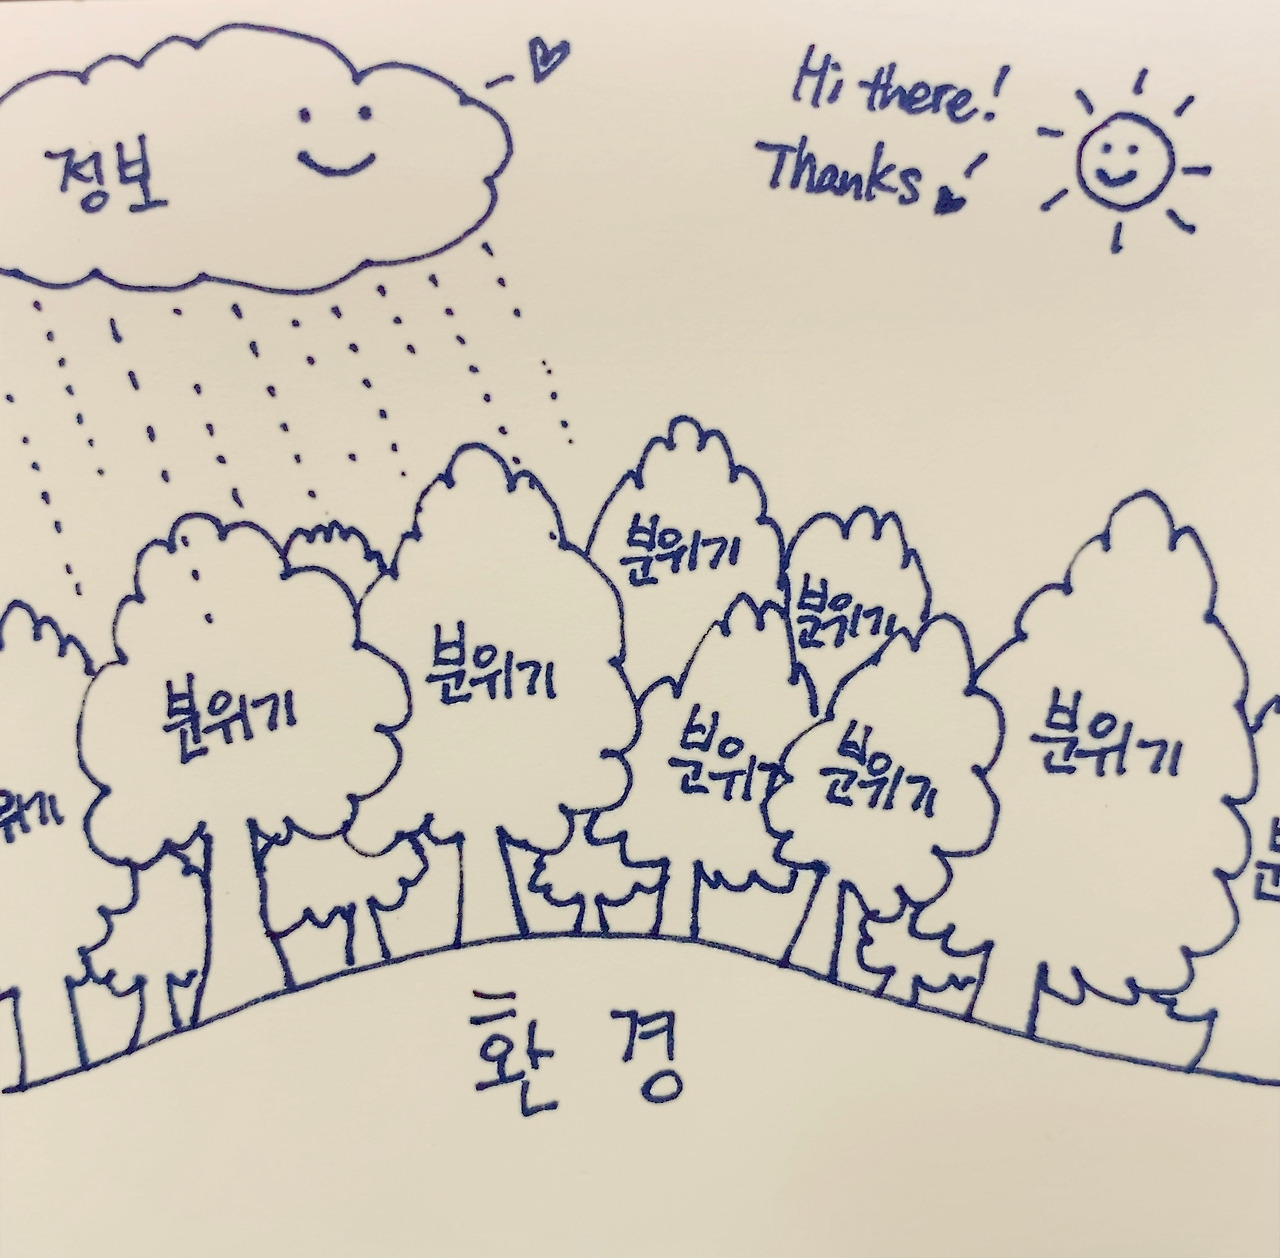 Hi there!
Thanks
정보
분위기
분위기
분위기
분위기
분위기
분위기
분위기
위기
환경